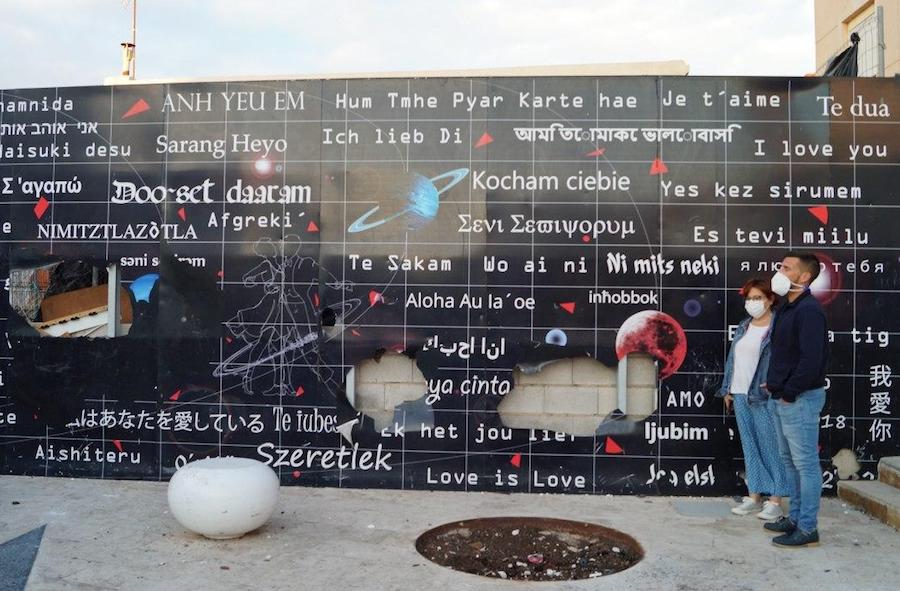 hamnida
ANH YEU EM
Hum Tmhe Pyar Karte hae
Je t´aime
Te dua
אני אוהב אות
Ich lieb Di
Daisuki desu
Sarang Heyo
I love you
Σ 'αγαπώ
Doo-set daaram
Kocham ciebie
Yes kez sirumem
e
NIMITZTLAZÒTLA
Afgreki´
Σενι Σεϖιψορυμ
Es tevi miilu
səni sevirəm
Te Sakam
Wo ai ni
Ni mits neki
я лю
тебя
Aloha Au la´oe
inħobbok
a tig
انا احبك
ya cinta
AMO
我
愛
你
te
はあなたを愛している
Te iubes
Ek het jou lief
ljubim
18
Aishiteru
Szeretlek
Love is Love